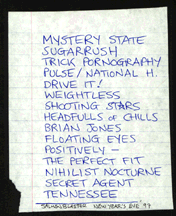 MYSTERY STATE
SUGARRUSH
TRICK PORNOGRAPHY
PULSE/NATIONAL H.
DRIVE IT!
WEIGHTLESS
SHOOTING STARS
HEADFULLS OF CHILLS
BRIAN JONES
FLOATING EYES
POSITIVELY —
THE PERFECT FIT
NIHILIST NOCTURNE
SECRET AGENT
TENNESSEE
NEW YEAR'S EVE '97